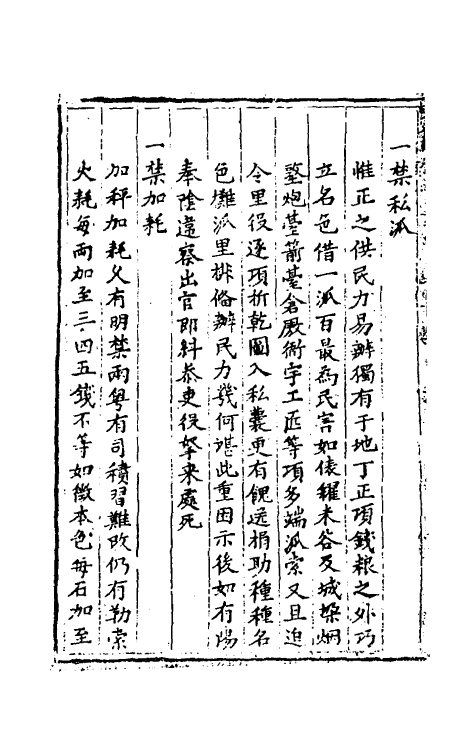 一禁私派
惟正之供民力易辦獨有于地丁正項錢粮之外巧
立名色借一派百最為民害如俵糴米谷及城垜烟
墪炮䑓箭䑓倉厫衙宇工匠等項多端派索又且迫
令里役逐項折乾圖入私囊更有餽送捐助種種名
色攤派里排偹辦民力幾何堪此重困示後如有陽
奉陰違察出官即糾叅吏役拏来處死
一禁加耗
加秤加耗久有明禁兩粤有司積習難改仍有勒索
火耗每兩加至三四五錢不等如徵本色每石加至